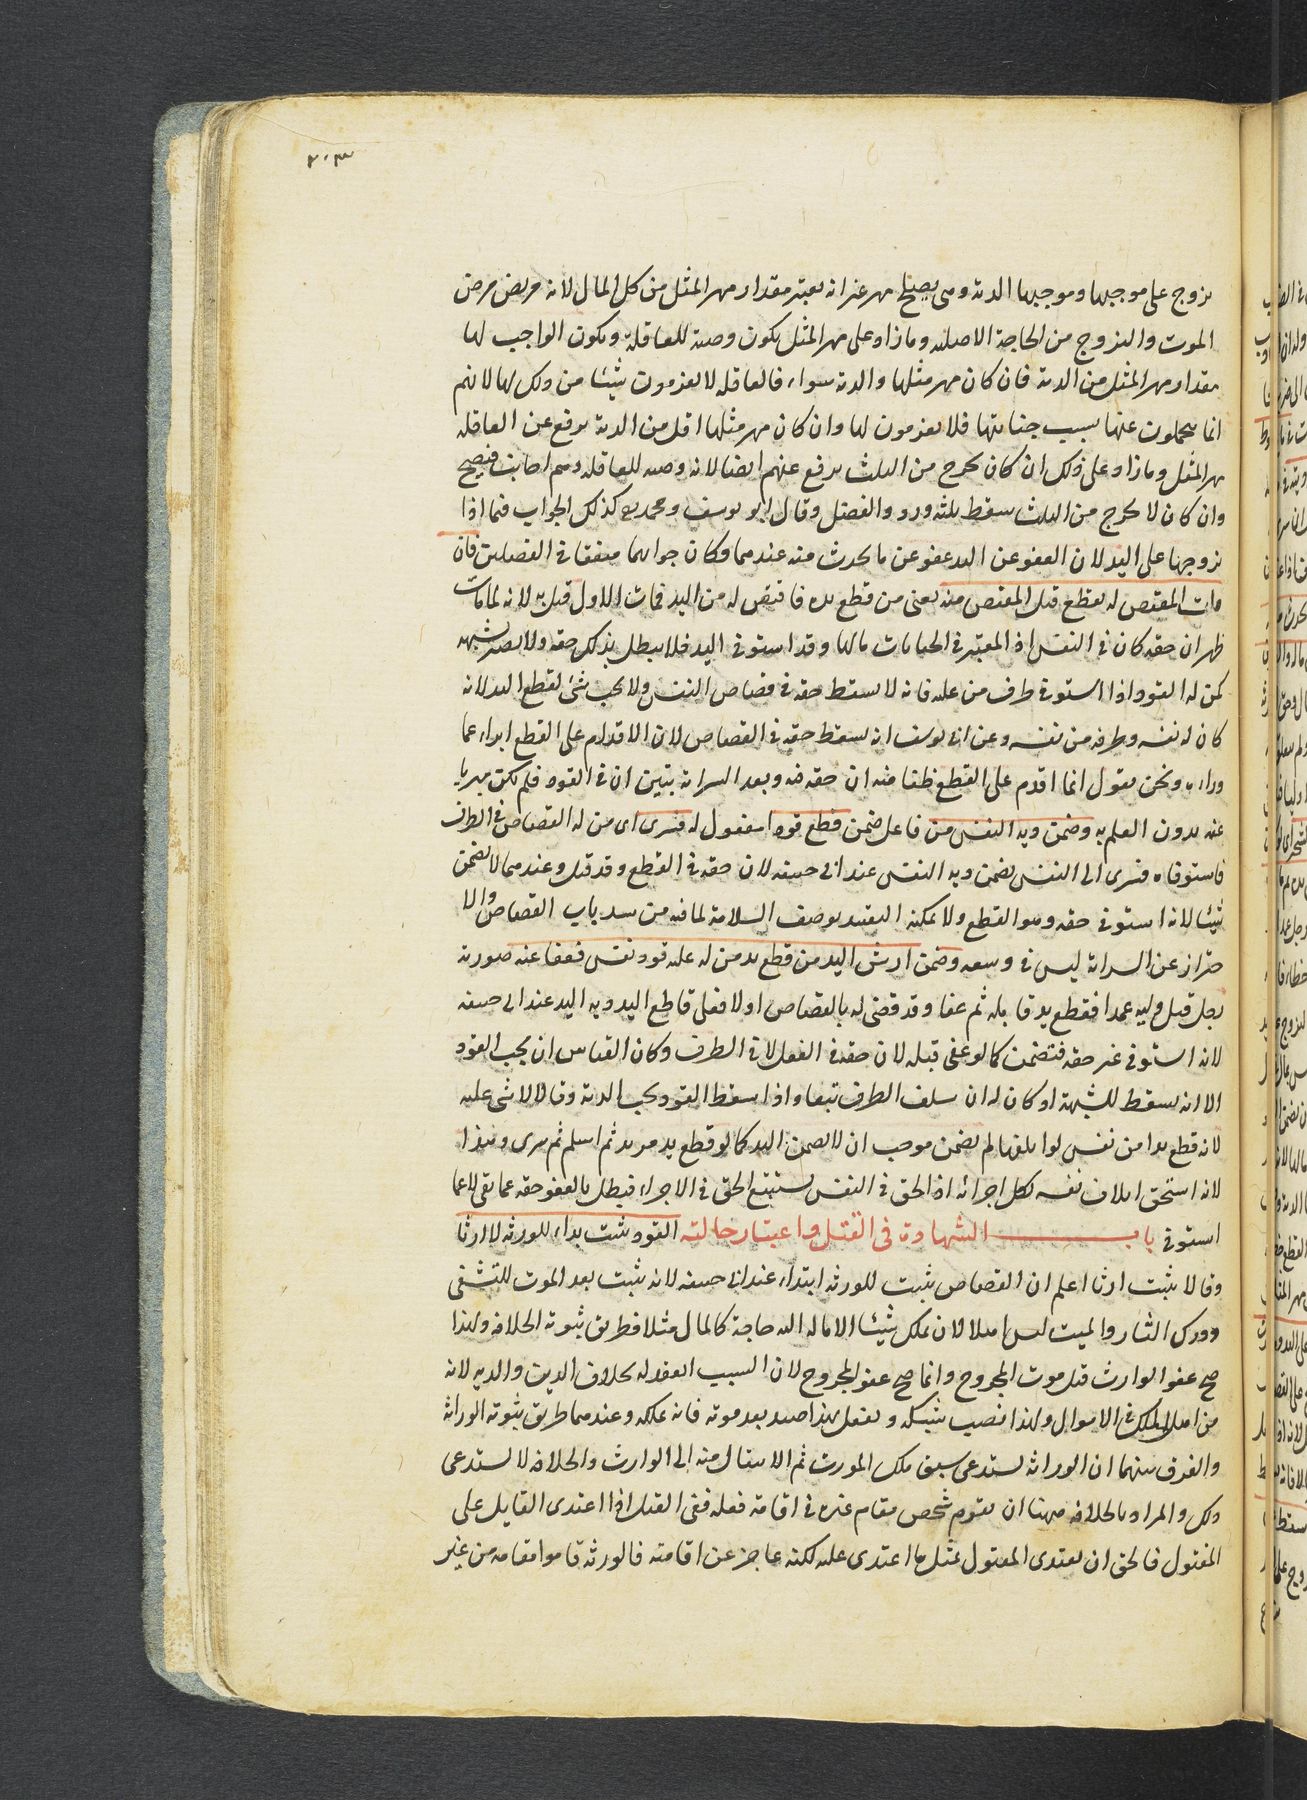 ٢٠٣
تزوج على موجبها وموجبها الدية وهي يصلح مهر غير انه يعتبر مقدار مهر المثل من كل المال لانه مريض مرض
الموت والتزوج من الحاجة الاصلية وما زاد على مهر المثل يكون وصية للعاقلة ويكون الواجب لها
مقدار مهر المثل من الدية فان كان مهر مثلها والدية سواء فالعاقلة لا يغرمون شيئا من ذلك لها لانهم
انما يتحملون عنها بسبب جنايتها فلا يغرمون لها وان كان مهر مثلها اقل من الدية يرفع عن العاقلة
مهر المثل وما زاد على ذلك ان كان يخرج من الثلث يرفع عنهم ايضا لانه وصية للعاقلة وهم اجانب فيصح
وان كان لا يخرج من الثلث سقط ثلثه ورد والفضل وقال ابو يوسف ومحمد كذلك الجواب فيما اذا
تزوجها على اليد لان العفو عن اليد عفو عن ما يحدث منه عندهما وكان جوابهما متفقا في الفصلين فان
مات المقتص له بقطع قتل المقتص منه يعني من قطع يده فاقتص له من اليد فمات الاول قتل به لانه لما مات
ظهر ان حقه كان في النفس اذ المعتبر في الجنايات مآلها وقد استوفى اليد فلا يبطل بذلك حقه ولا يصير شبهة
كمن له القود اذا استوفى طرف من عليه فانه لا يسقط حقه في قصاص النفس ولا يجب شئ لقطع اليد لانه
كان له نفسه وطرفه من نفسه وعن ابي يوسف انه يسقط حقه في القصاص لان الاقدام على القطع ابراء عما
وراءه ونحن نقول انما اقدم على القطع ظنا منه ان حقه فيه وبعد السراية تبين ان في القود فلم يكن مبريا
عنه بدون العلم به وضمن دية النفس من فاعل ضمن قطع قودا مفعول له فسرى اى من له القصاص في الطرف
فاستوفاه فسرى الى النفس يضمن دية النفس عند ابي حنيفة لان حقه في القطع وقد قتل وعندهما لا يضمن
شيئا لانه استوفى حقه وهو القطع ولا يمكنه التقييد بوصف السلامة لما فيه من سد باب القصاص والا
حتراز عن السراية ليس في وسعه وضمن ارش اليد من قطع يد من له عليه قود نفس فعفا عنه صورته
رجل قتل وليه عمدا فقطع يد قاتله ثم عفا وقد قضى له بالقصاص او لا فعلى قاطع اليد دية اليد عند ابي حنيفة
لانه استوفى غير حقه فتضمن كما لو عفى قبله لان حقه في الفعل لا في الطرف وكان القياس ان يجب القود
الا انه يسقط للشبهة اذ كان له ان يتلف الطرف تبعا واذا سقط القود يجب الدية وقالا لا شئ عليه
لانه قطع يدا من نفس لو اتلفها لم يضمن موجب ان لا يضمن اليد كما لو قطع يد مرتد ثم اسلم ثم سرى وهذا
لانه استحق اتلاف نفسه بكل اجزائه اذ الحق في النفس يستتبع الحق في الاجزاء فيبطل بالعفو حقه عما بقى لا عما
استوفى باب الشهادة في القتل واعتبار حالته القود يثبت بداء للورثة لا ارثا
وقالا يثبت ارثا اعلم ان القصاص يثبت للورثة ابتداء عند ابي حنيفة لانه يثبت بعد الموت للتشفى
ودرك الثار والميت ليس اهلا لان يملك شيئا الا ما له اليه حاجة كالمال مثلا فطريق ثبوته الخلافة ولهذا
صح عفو الوارث قبل موت المجروح وانما صح عفو المجروح لان السبب انعقد له بخلاف الدين والدية لانه
من اهل الملك في الاموال ولهذا نصب شبكة وتعقل بها صيد بعد موته فانه يملكه وعندهما طريق ثبوته الوراثة
والفرق بينهما ان الوراثة يستدعى سبق ملك المورث ثم الانتقال منه الى الوارث والخلافة لا يستدعى
ذلك والمراد بالخلافة ههنا ان يقوم شخص مقام غيره في اقامة فعله ففى القتل اذا اعتدى القاتل على
المقتول فالحق ان يعتدى المقتول بمثل ما اعتدى عليه لكنه عاجز عن اقامته فالورثة قاموا مقامه من غير